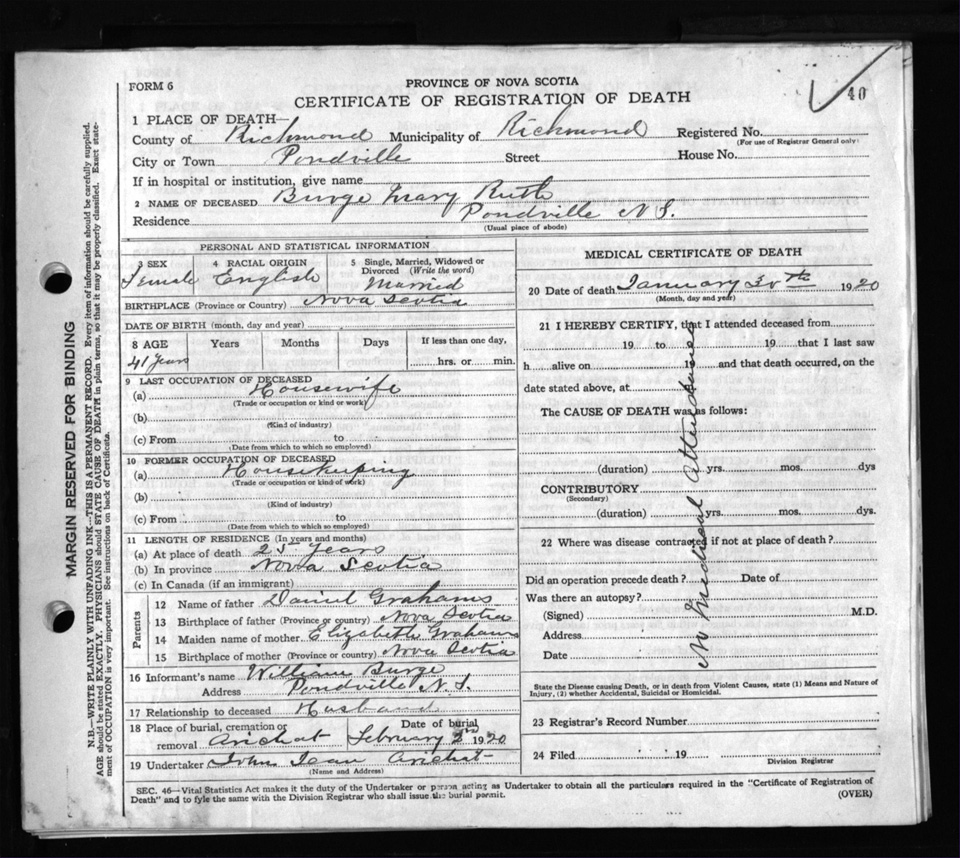 40
FORM 6
PROVINCE OF NOVA SCOTIA
CERTIFICATE OF REGISTRATION OF DEATH
1 PLACE OF DEATH—
County of Richmond Municipality of Richmond Registered No.
(For use of Registrar General only)
City or Town Pondville Street House No.
If in hospital or institution, give name
2 NAME OF DECEASED Burge Mary Ruth
Residence Pondville N S.
(Usual place of abode)
PERSONAL AND STATISTICAL INFORMATION
3 SEX 4 RACIAL ORIGIN 5 Single, Married, Widowed or Divorced (Write the word)
Female English Married
BIRTHPLACE (Province or Country) Nova Scotia
DATE OF BIRTH (month, day and year)
8 AGE Years Months Days If less than one day,
41 Years hrs. or min.
9 LAST OCCUPATION OF DECEASED
(a) Housewife
(Trade or occupation or kind or work)
(b)
(Kind of industry)
(c) From to
(Date from which to which so employed)
10 FORMER OCCUPATION OF DECEASED
(a) Housekeeping
(Trade or occupation or kind of work)
(b)
(Kind of industry)
(c) From to
(Date from which to which so employed)
11 LENGTH OF RESIDENCE (In years and months)
(a) At place of death 25 Years
(b) In province Nova Scotia
(c) In Canada (if an immigrant)
Parents
12 Name of father Daniel Grahams
13 Birthplace of father (Province or country) Nova Scotia
14 Maiden name of mother Elizabeth Grahams
15 Birthplace of mother (Province or country) Nova Scotia
16 Informant's name William Burge
Address Pondville N. S.
17 Relationship to deceased Husband
18 Place of burial, cremation or removal Arichat Date of burial February 2 1920
19 Undertaker John Jean Arichat
(Name and Address)
MEDICAL CERTIFICATE OF DEATH
20 Date of death January 30th 1920
(Month, day and year)
21 I HEREBY CERTIFY, that I attended deceased from
19 to 19 that I last saw
h alive on 19 and that death occurred, on the
date stated above, at
The CAUSE OF DEATH was as follows:
(duration) yrs. mos. dys
CONTRIBUTORY
(Secondary)
(duration) yrs. mos. dys.
22 Where was disease contracted if not at place of death?
Did an operation precede death? Date of
Was there an autopsy?
(Signed) M.D.
Address
Date
No Medical Attendance
State the Disease causing Death, or in death from Violent Causes, state (1) Means and Nature of
Injury, (2) whether Accidental, Suicidal or Homicidal.
23 Registrar's Record Number
24 Filed 19
Division Registrar
SEC. 46—Vital Statistics Act makes it the duty of the Undertaker or person acting as Undertaker to obtain all the particulars required in the "Certificate of Registration of
Death" and to fyle the same with the Division Registrar who shall issue the burial permit.
(OVER)
MARGIN RESERVED FOR BINDING
N.B.—WRITE PLAINLY WITH UNFADING INK—THIS IS A PERMANENT RECORD. Every item of information should be carefully supplied.
AGE should be stated EXACTLY. PHYSICIANS should STATE CAUSE OF DEATH in plain terms, so that it may be properly classified. Exact state-
ment of OCCUPATION is very important. See instructions on back of Certificate.